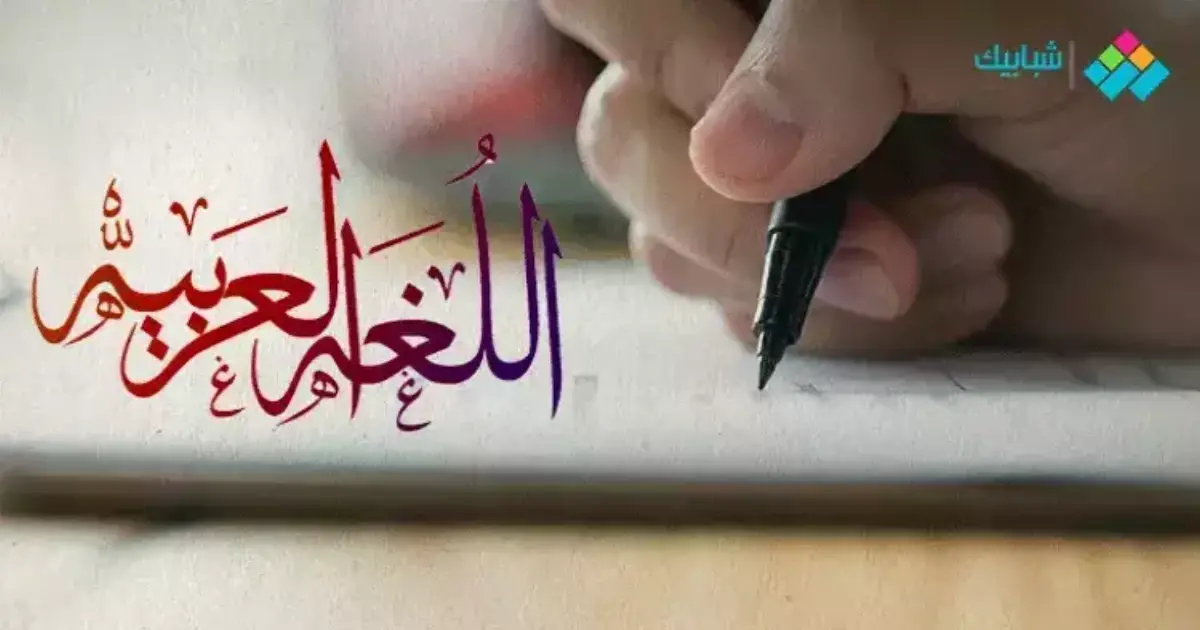 شبابيك
اللُغَة العَربية